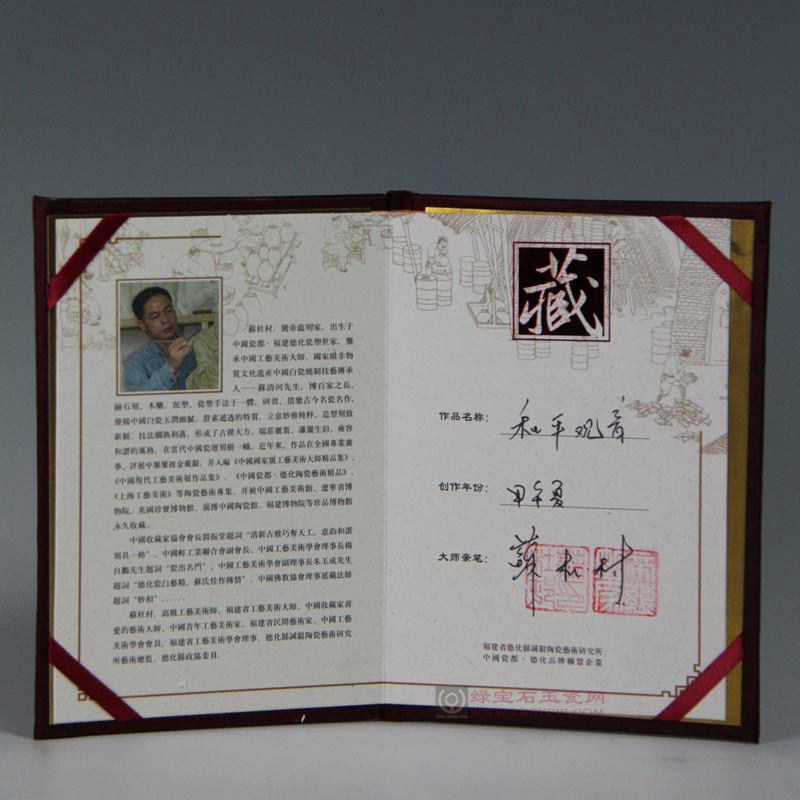 蘇杜村，號帝蘊明家，出生于
中國瓷都·福建德化瓷塑世家，襲
承中國工藝美術大師、國家級非物
質文化遺産中國白瓷燒制技藝傳承
人——蘇清河先生，博百家之長，
融石刻、木雕、泥塑、瓷塑手法于一體，研習、借鑒古今名瓷名作，
發揚中國白瓷玉潤細膩，澄素通透的特質，立意妙雅純粹，造型别致
新穎，技法嫻熟利落，形成了古樸大方、端莊麗質、瀟灑生韵，雍容
和諧的風格，在當代中國瓷壇别樹一幟。近年來，作品在全國專業賽
事、評展中屢屢披金戴銀，并入編《中國國家級工藝美術大師精品集》、
《中國現代工藝美術展作品集》、《中國瓷都·德化陶瓷藝術精品》、
《上海工藝美術》等陶瓷藝術專集，并被中國工藝美術館、遼寧省博
物院、英國珍寶博物館、淄博中國陶瓷館、福建博物院等珍品博物館
永久收藏。
中國收藏家協會會長閻振堂題詞“清新古雅巧奪天工，意韵和諧
别具一格”、中國輕工業聯合會副會長、中國工藝美術學會理事長楊
自鵬先生題詞“瓷出名門”、中國工藝美術學會副理事長朱玉成先生
題詞“德化瓷白藝精，蘇氏佳作傳情”、中國佛教協會理事延藏法師
題詞“妙相”……
蘇杜村，高級工藝美術師、福建省工藝美術大師、中國收藏家喜
愛的藝術大師、中國青年工藝美術家、福建省民間藝術家、中國工藝
美術學會會員、福建省工藝美術學會理事、德化縣誠毅陶瓷藝術研究
所藝術總監、德化縣政協委員。
藏
作品名称：和平观音
创作年份：甲午夏
大师亲笔：蘇杜村
福建省德化縣誠毅陶瓷藝術研究所
中國瓷都·德化品牌聯盟企業
绿宝石玉瓷网